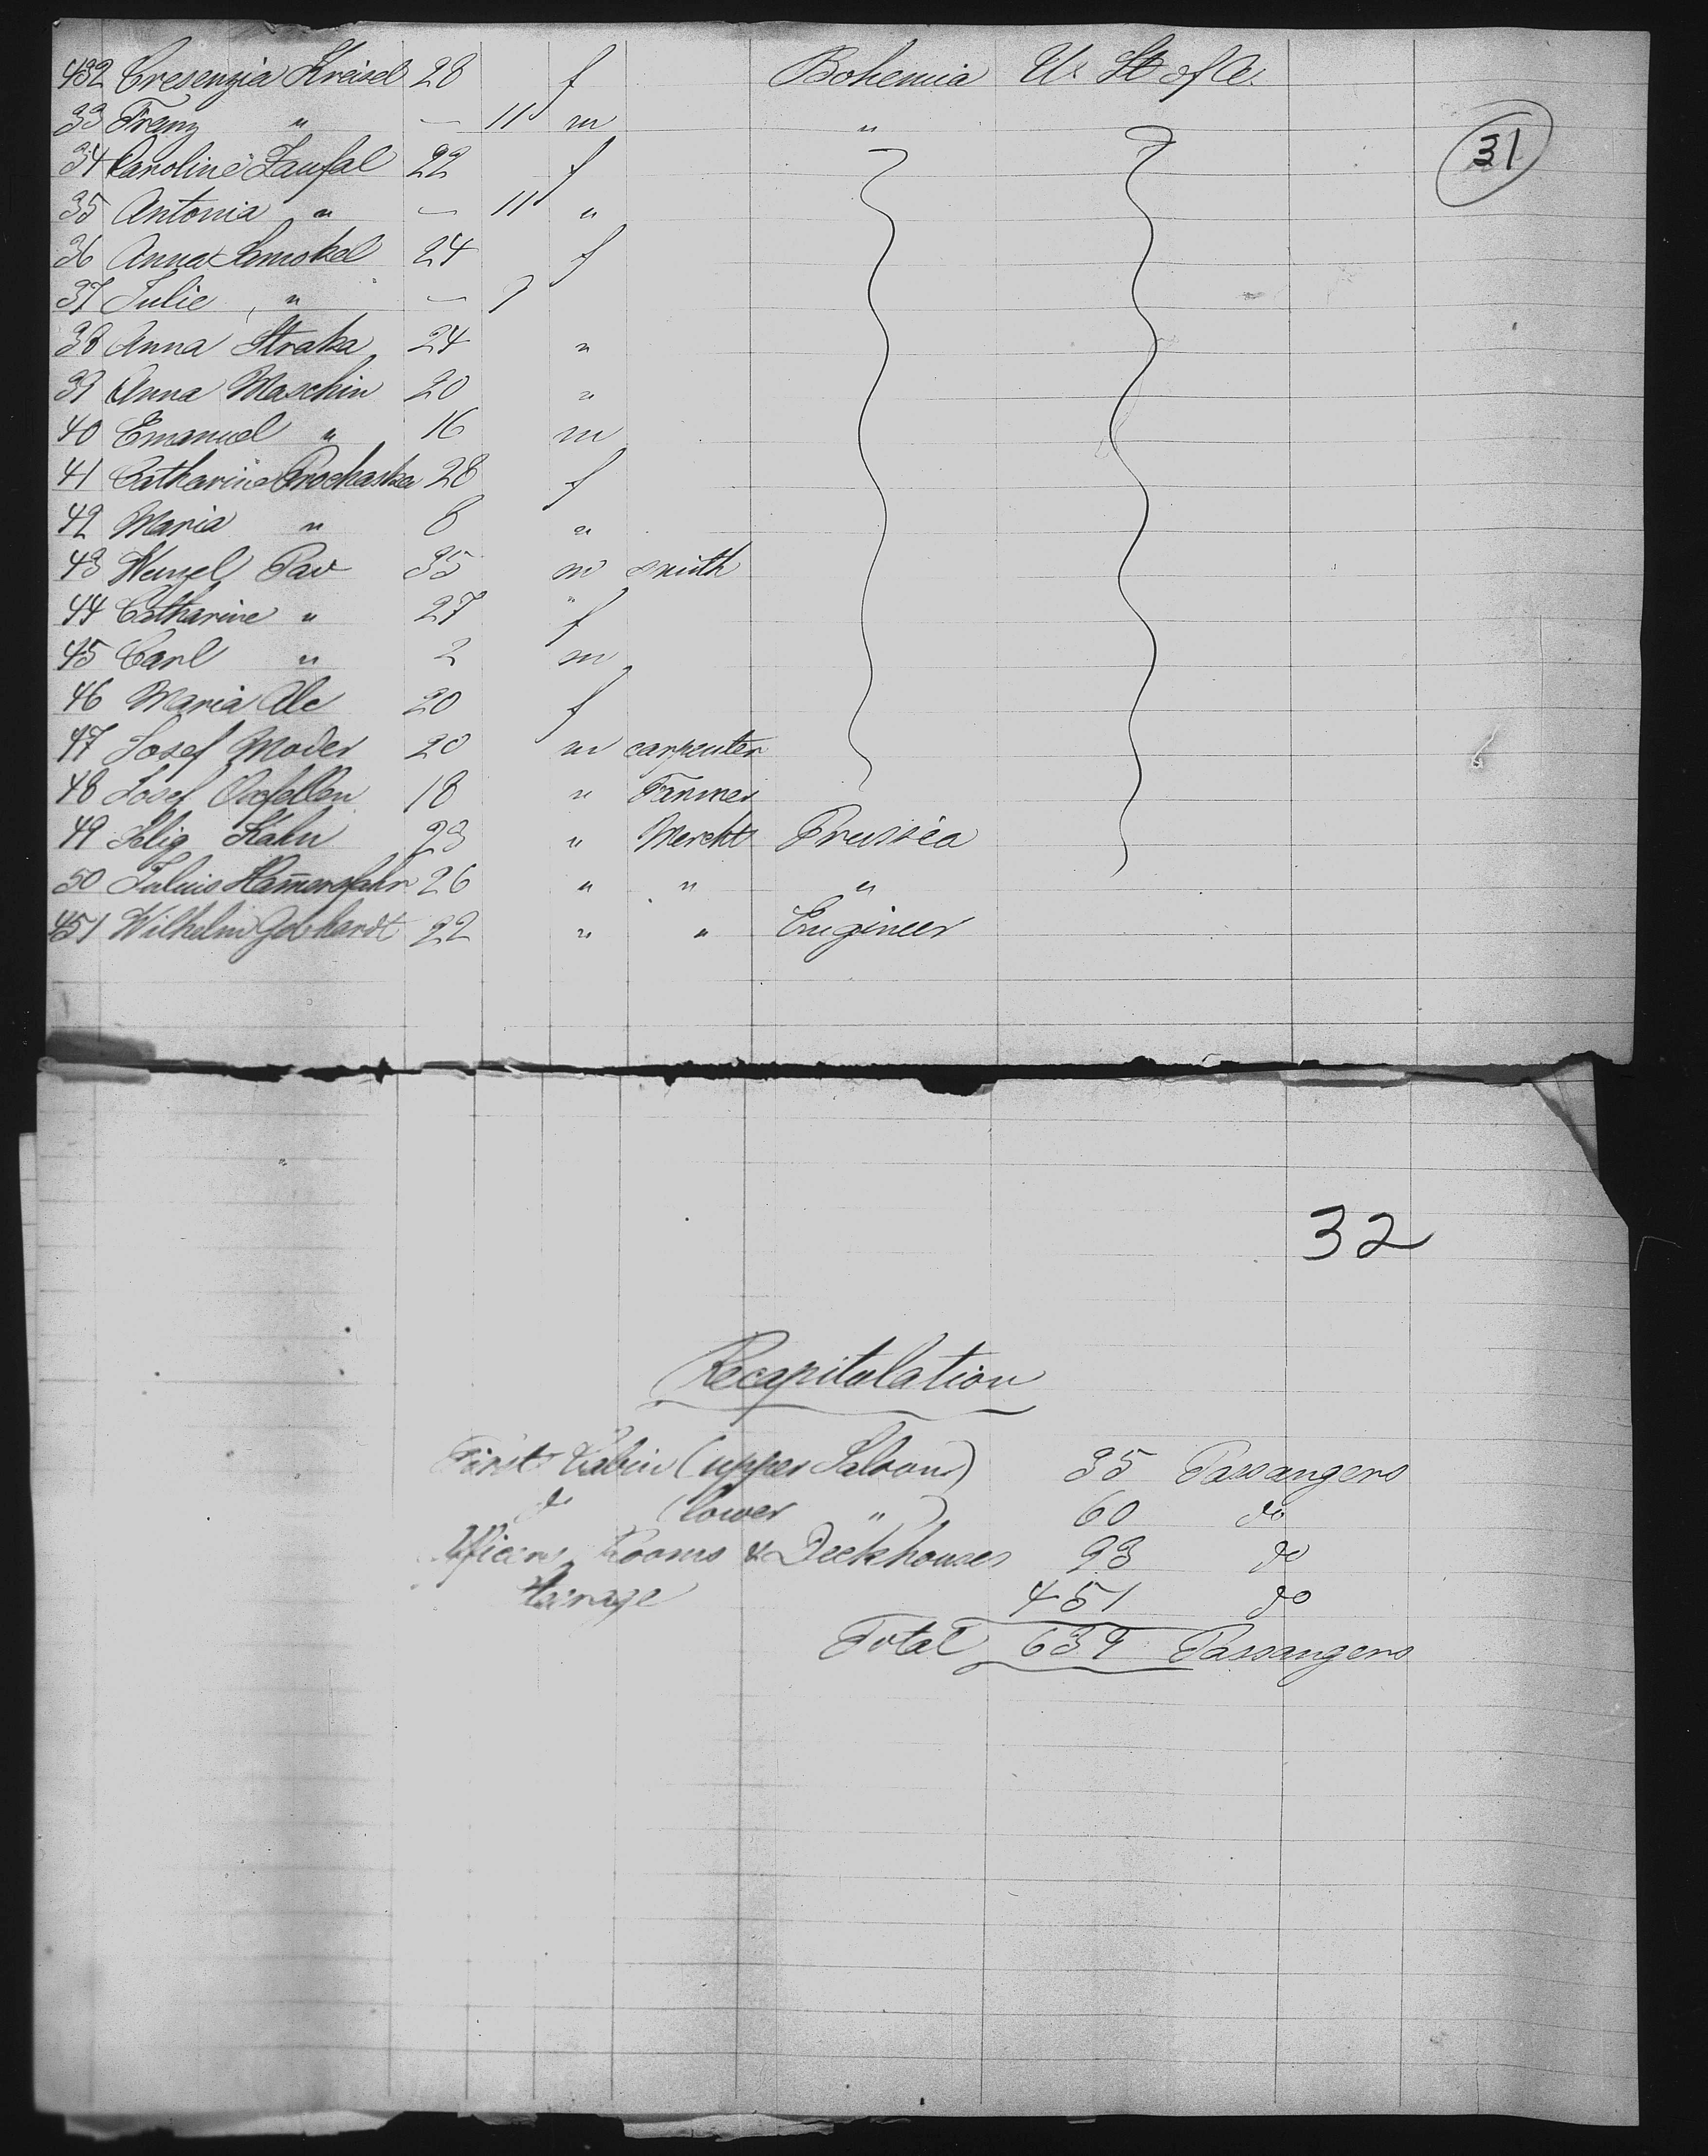 432 Cresenzia Kreisel 28 f Bohemia U. St. of A.
33 Franz " — 11 m "
31
34 Caroline Zaufal 22 f
35 Antonia " — 11 "
36 Anna Smokal 24 f
37 Julie " — 7
38 Anna Straka 24 "
39 Anna Maschin 20 "
40 Emanuel " 16 m
41 Catharine Prochaska 28 f
42 Maria " 8 "
43 Wenzel Pav 35 m smith
44 Catharine " 27 " f
45 Carl " 2 m
46 Maria Ale 20 f
47 Josef Moder 20 m carpenter
48 Josef 18 " Farmer
49 Selig Kahn 23 " Mercht Prussia
50 Julius 26 " " "
451 Wilhelm Gebhardt 22 " " Engineer
32
Recapitulation
First Cabin (upper Saloon) 35 Passangers
do (lower ") 60 do
Officers Rooms & Deckhouses 93 do
Steerage 451 do
Total 639 Passangers